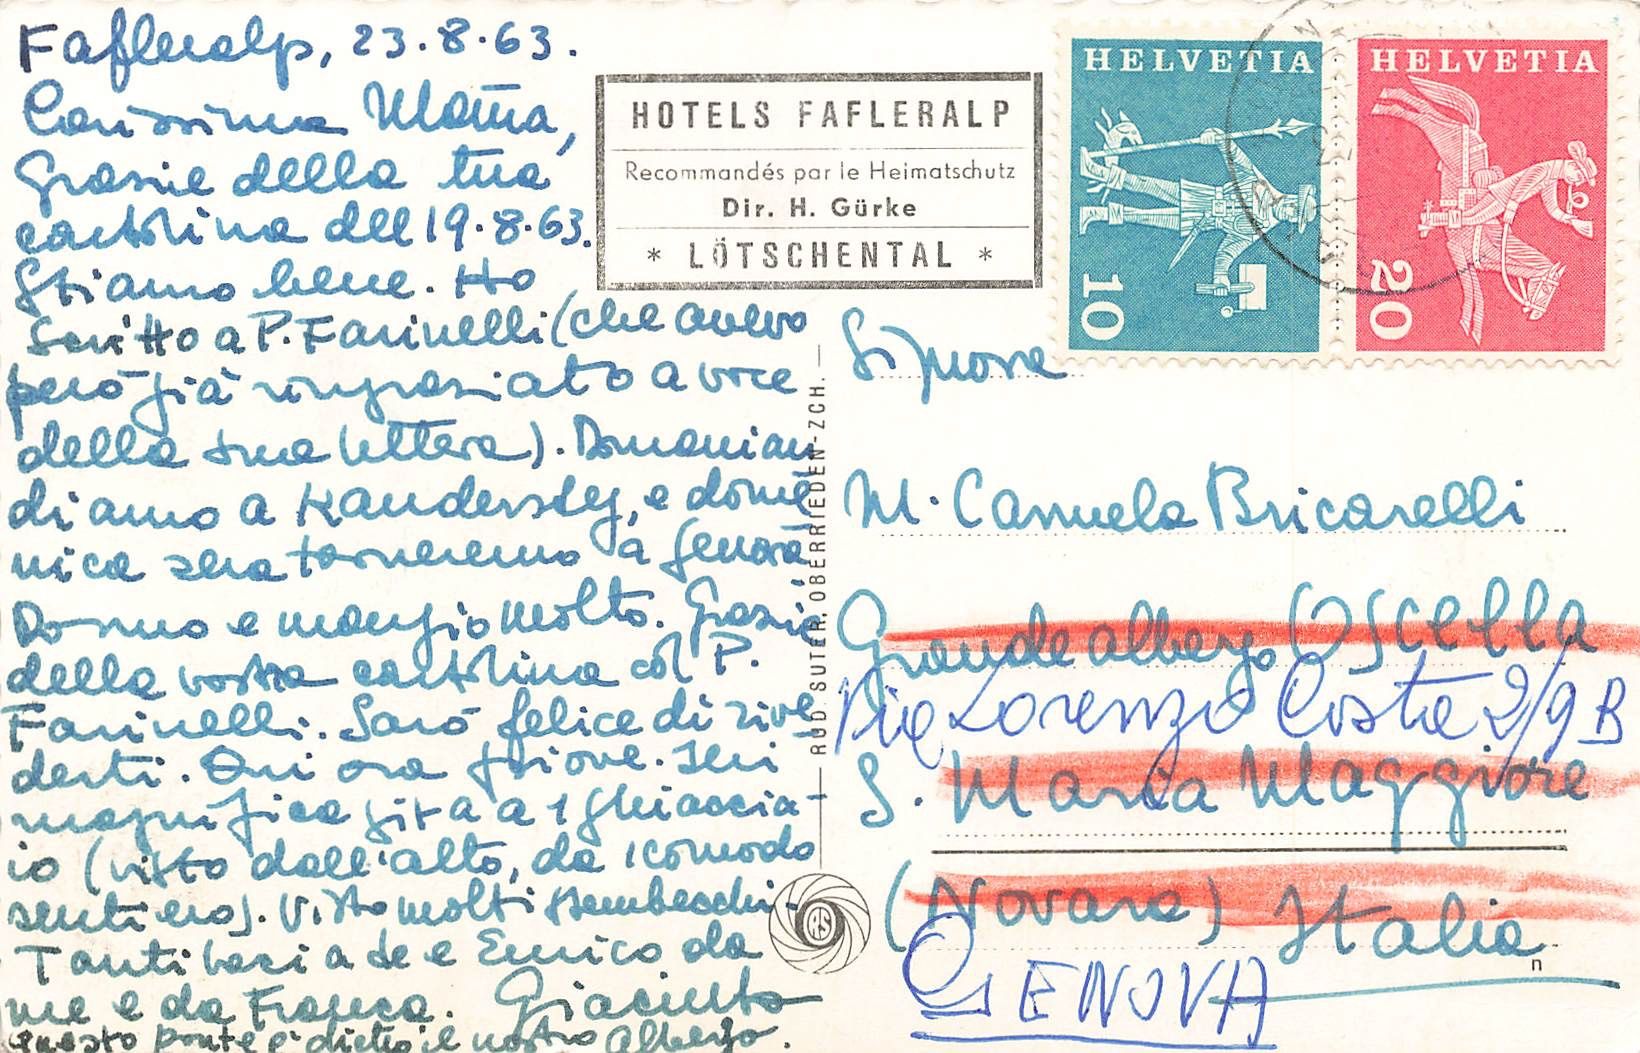 Fafleralp, 23.8.63.
Carissima Mama,
Grazie della tua
cartolina del 19.8.63.
Stiamo bene. Ho
scritto a P. Farinelli (che avevo
però già ringraziato a voce
della sua lettera). Domani an
diamo a Kandersteg, e dome
nica sera torneremo a Genova
Dormo e mangio molto. Grazie
della vostra cartolina col P.
Farinelli. Sarò felice di rive
derti. Qui ora piove. Ieri
magnifica gita a 1 ghiaccia-
io (visto dall'alto, da 1 comodo
sentiero). Visto molti stambecchi.
Tanti baci a te e Enrico da
me e da Franca. Giacinto
questo ponte è dietro il nostro albergo.
HOTELS FAFLERALP
Recommandés par le Heimatschutz
Dir. H. Gürke
* LÖTSCHENTAL *
HELVETIA
10
HELVETIA
20
RUD. SUTER, OBERRIEDEN-ZCH.
Signora
M. Carmela Bricarelli
Grande albergo OSCELLA
Via Lorenzo Costa 2/9 B
S. Maria Maggiore
(Novara) Italia
GENOVA
n